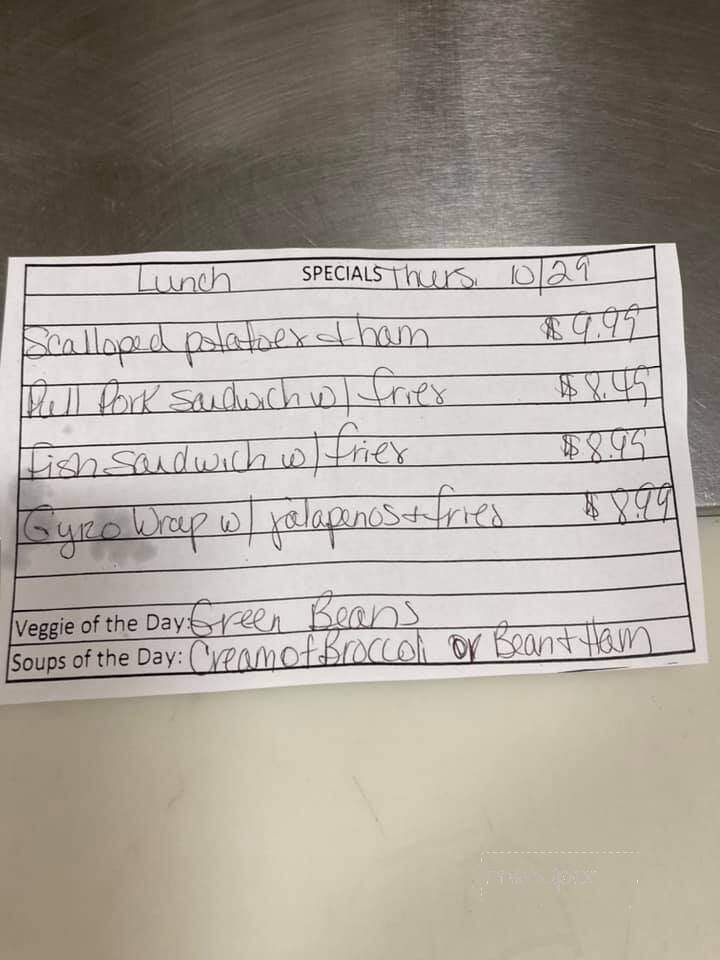 Lunch SPECIALS Thurs. 10/29
Scalloped potatoes + ham $9.99
Pull Pork Sandwich w/ fries $8.49
Fish Sandwich w/ fries $8.99
Gyro Wrap w/ jalapenos + fries $8.99
Veggie of the Day: Green Beans
Soups of the Day: Cream of Broccoli or Bean + Ham